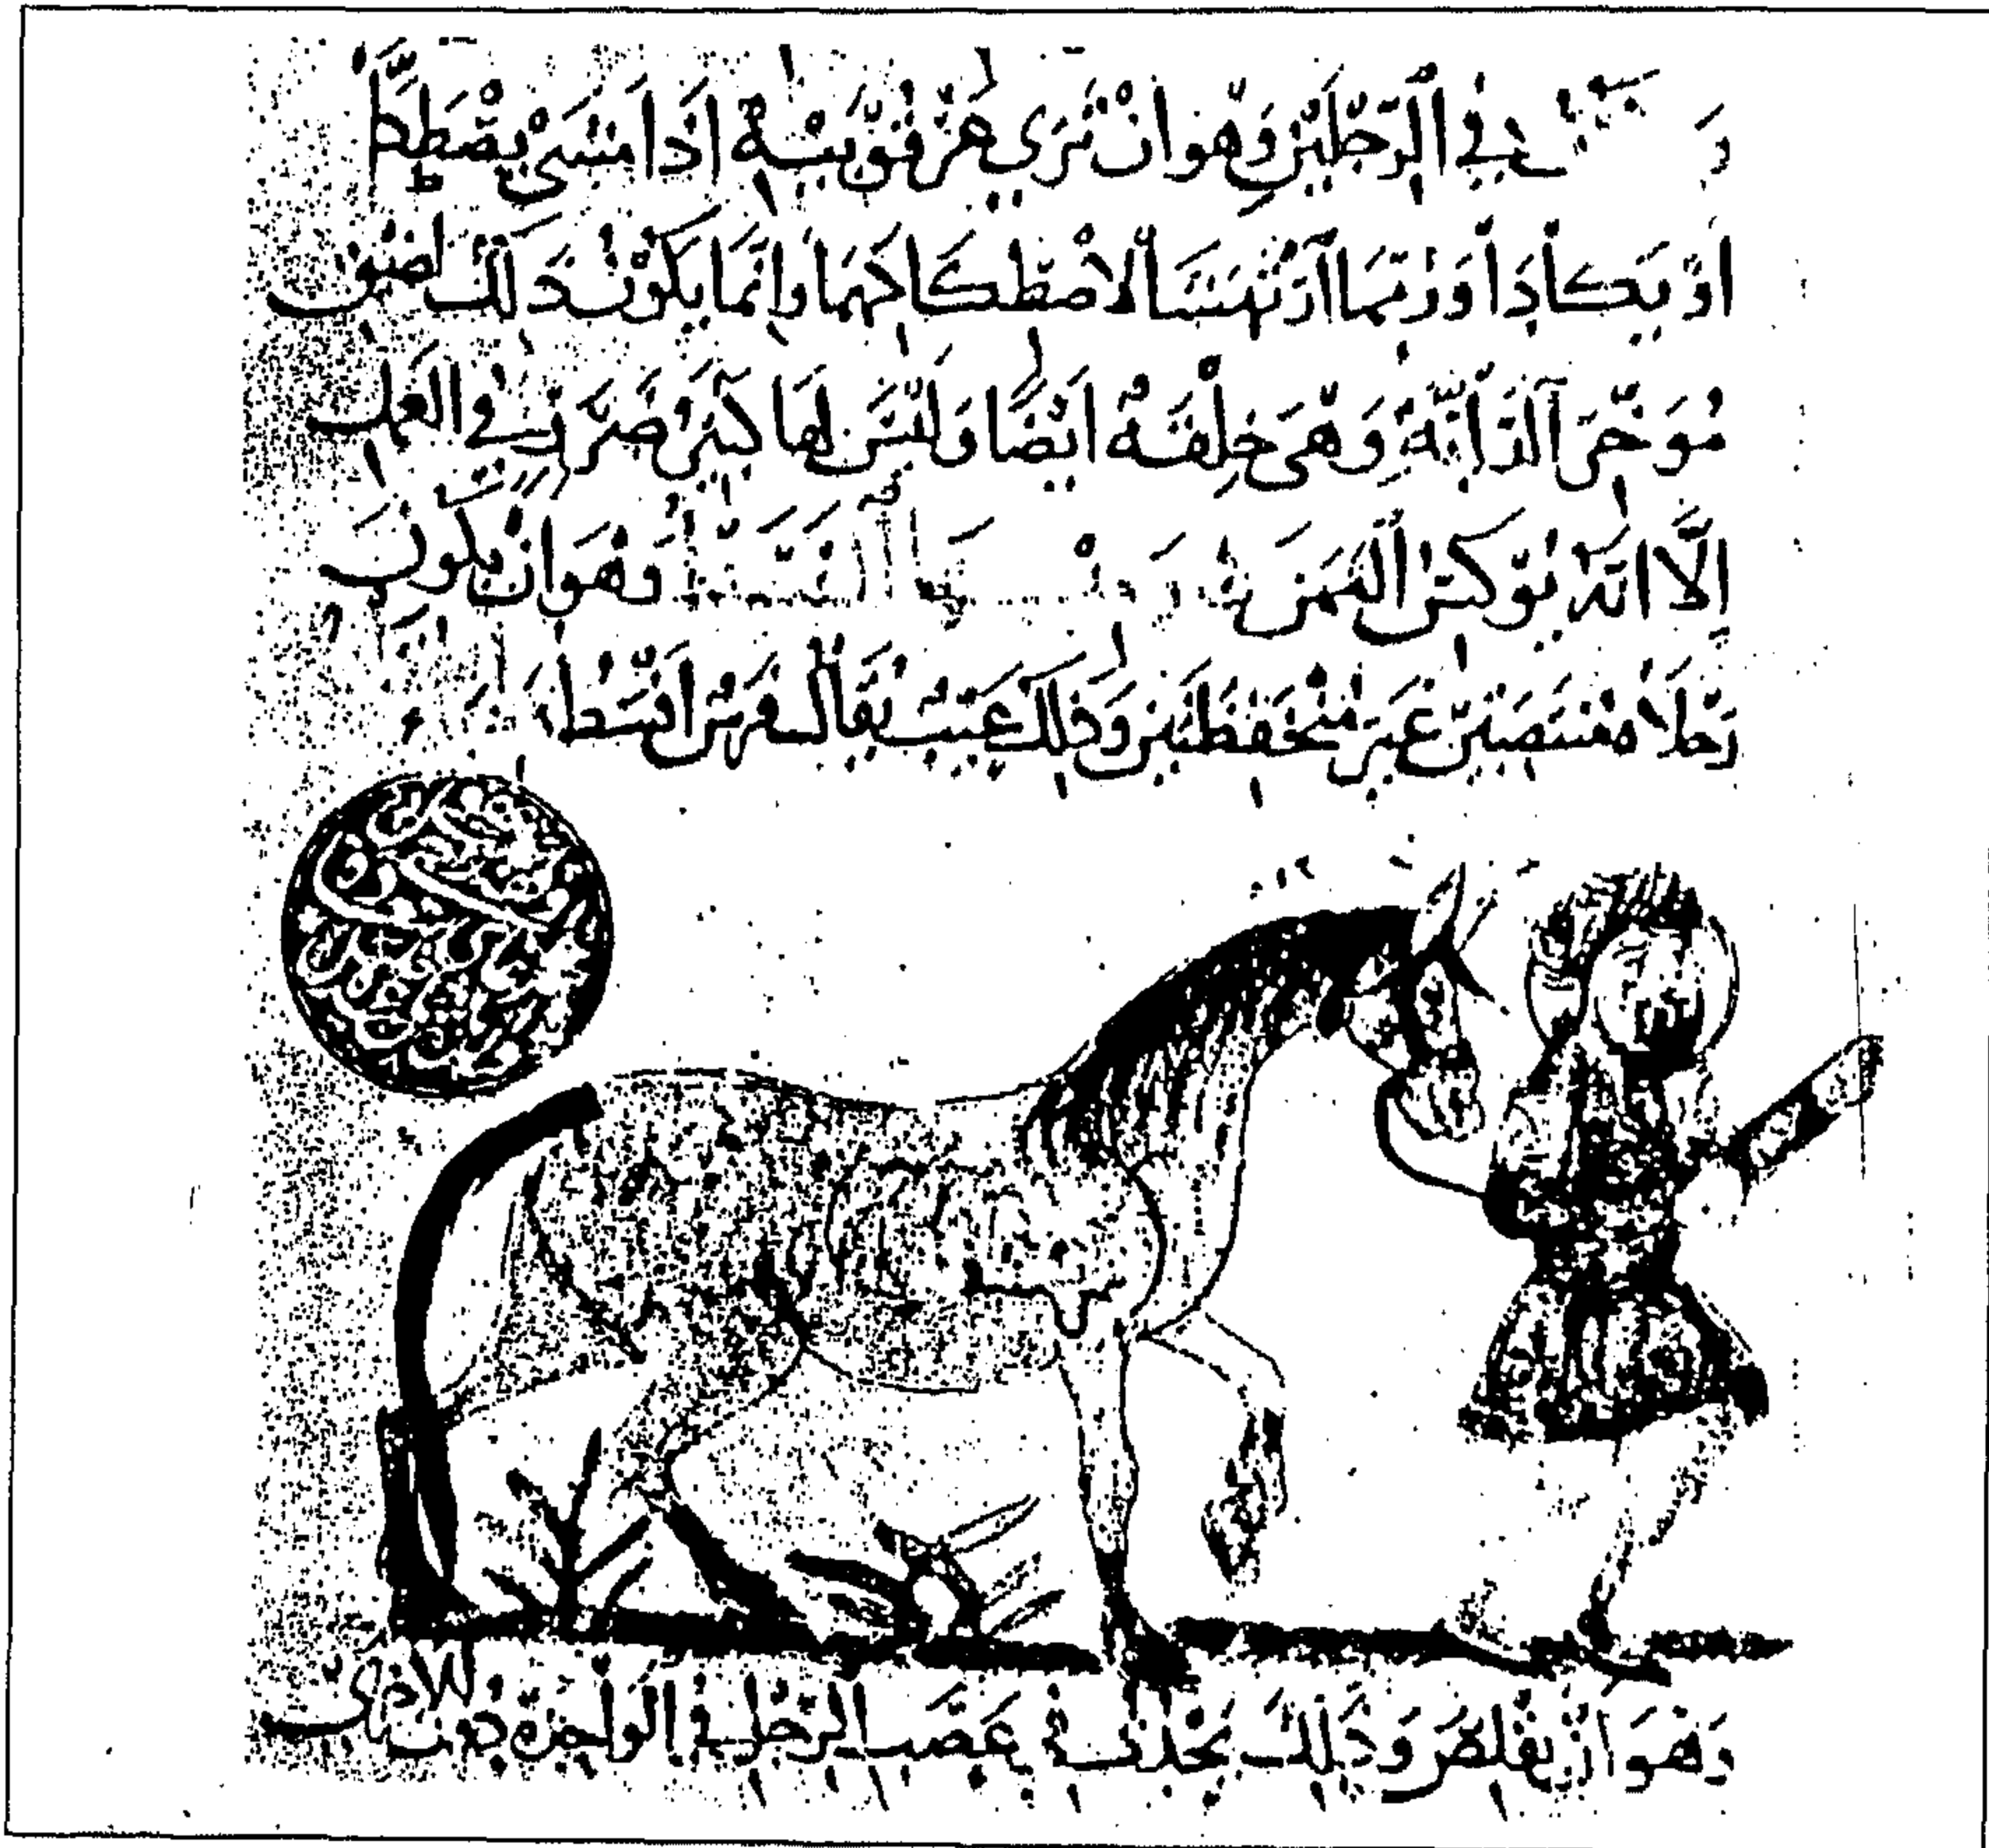 في الرِّجْلَيْنِ وَهوَ انْ تَرَي عَرْقُوْبَيْهِ اذَا مَشَى يَصْطَكَّا
اوْ يَكادَا وَرُبَّمَا لاصْطِكَاكِهِمَا وَاِنَّمَا يَكُوْنُ ذَلِكَ لضيق
مُوَخَّرِ الدَّابَّةِ وَهْيَ خِلْقَةٌ ايْضًا وَلَيْسَ لَهَا كَبِيْرُ ضَرَرٍ فِي العَمَلِ
اِلَّا انَّهُ وَهوَ انْ يَكُونَ
رِجْلاهُ مُنْتَصِبَتَيْنِ غَيْرَ وَذلِكَ عَيْبٌ يُقَالُ فَرَسٌ اقْسَطُ
وَهوَ انْ وَذَلِكَ يَحْدُثُ فِي عَصَبِ الرِّجْلِ الوَاحِدَةِ دون الاخرى